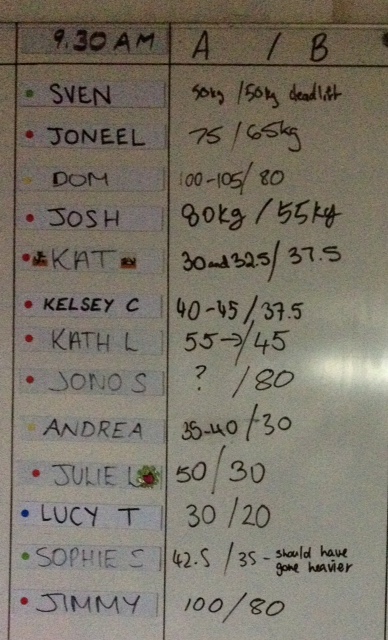 9.30 AM A / B
SVEN 50kg / 50kg deadlift
JONEEL 75 / 65kg
DOM 100-105 / 80
JOSH 80kg / 55kg
KAT 30 and 32.5 / 37.5
KELSEY C 40-45 / 37.5
KATH L 55→ / 45
JONO S ? / 80
ANDREA 35-40 / 30
JULIE L 50 / 30
LUCY T 30 / 20
SOPHIE S 42.5 / 35 - should have
gone heavier
JIMMY 100 / 80